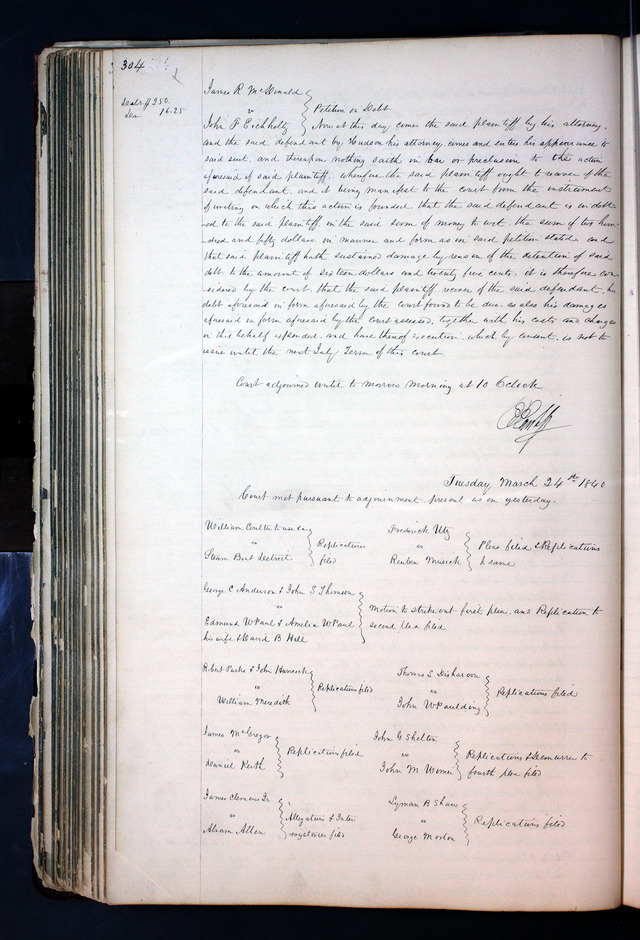 304
James R McDonald
vs
Petition in Debt
Debt $250.
Dam 16.25
John F Eichholtz
Now at this day comes the said plaintiff by his attorney.
and the said defendant by Hudson his attorney comes and enters his appearance to
said suit, and thereupon nothing saith in bar or preclusion to the action
aforesaid of said plaintiff, wherefore the said plaintiff ought to recover of the
said defendant, and it being manifest to the court from the instrument
of writing on which this action is founded that the said defendant is indebt
-ed to the said plaintiff in the said sum of money to wit, the sum of two hun-
-dred and fifty dollars in manner and form as in said petition stated and
that said plaintiff hath sustained damage by reason of the detention of said
debt to the amount of sixteen dollars and twenty five cents. it is therefore con
sidered by the court that the said plaintiff recover of the said defendant, his
debt aforesaid in form aforesaid by the court found to be due, as also his damages
aforesaid in form aforesaid by the court assessed, together with his costs and charges
in this behalf expended. and have thereof execution, which by consent is not to
issue until the next July Term of this court
Court adjourned until to morrow morning at 10 Oclock
Tuesday March 24th 1840
Court met pursuant to adjournment present as on yesterday.
William Coulter to use &c
vs
Steam Boat Detroit
Replications
filed
Frederick Utz
vs
Reuben Musick
Pleas filed & Replications
to same
George C Anderson & John S Thomson
vs
Edmund W Paul & Amelia W Paul
his wife & David B Hill
Motion to strike out first plea and Replication to
second plea filed
Robert Parks & John
vs
William Meredith
Replications filed
Thomas S Disharoon
vs
John W Paulding
Replications filed
James McGregor
vs
Daniel Keith
Replications filed
John G Shelton
vs
John M Wimer
Replications & Demurrer to
fourth plea filed
James Clemens Jr
vs
Abram Allen
Allegations & Inter
rogatories filed
Lyman B Shaw
vs
George Morton
Replications filed